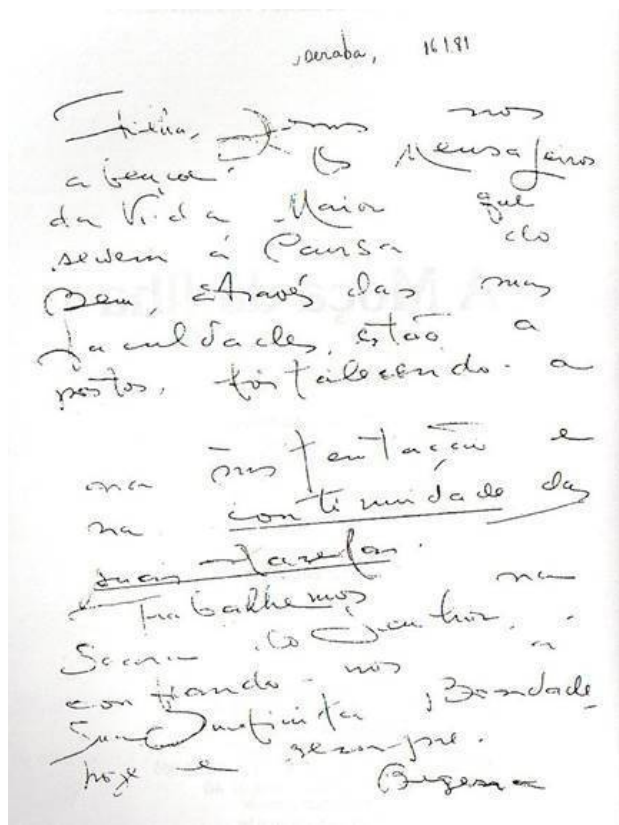 Uberaba, 16.1.81
Filha, Jesus nos
abençoe. Os Mensageiros
da Vida Maior que
servem à Causa do
Bem, através das suas
faculdades, estão a
postos, fortalecendo-a
na sustentação e
na continuidade das
suas tarefas.
Trabalhemos na
Seara do Senhor,
confiando-nos à
Sua Infinita Bondade,
hoje e sempre.
Bezerra